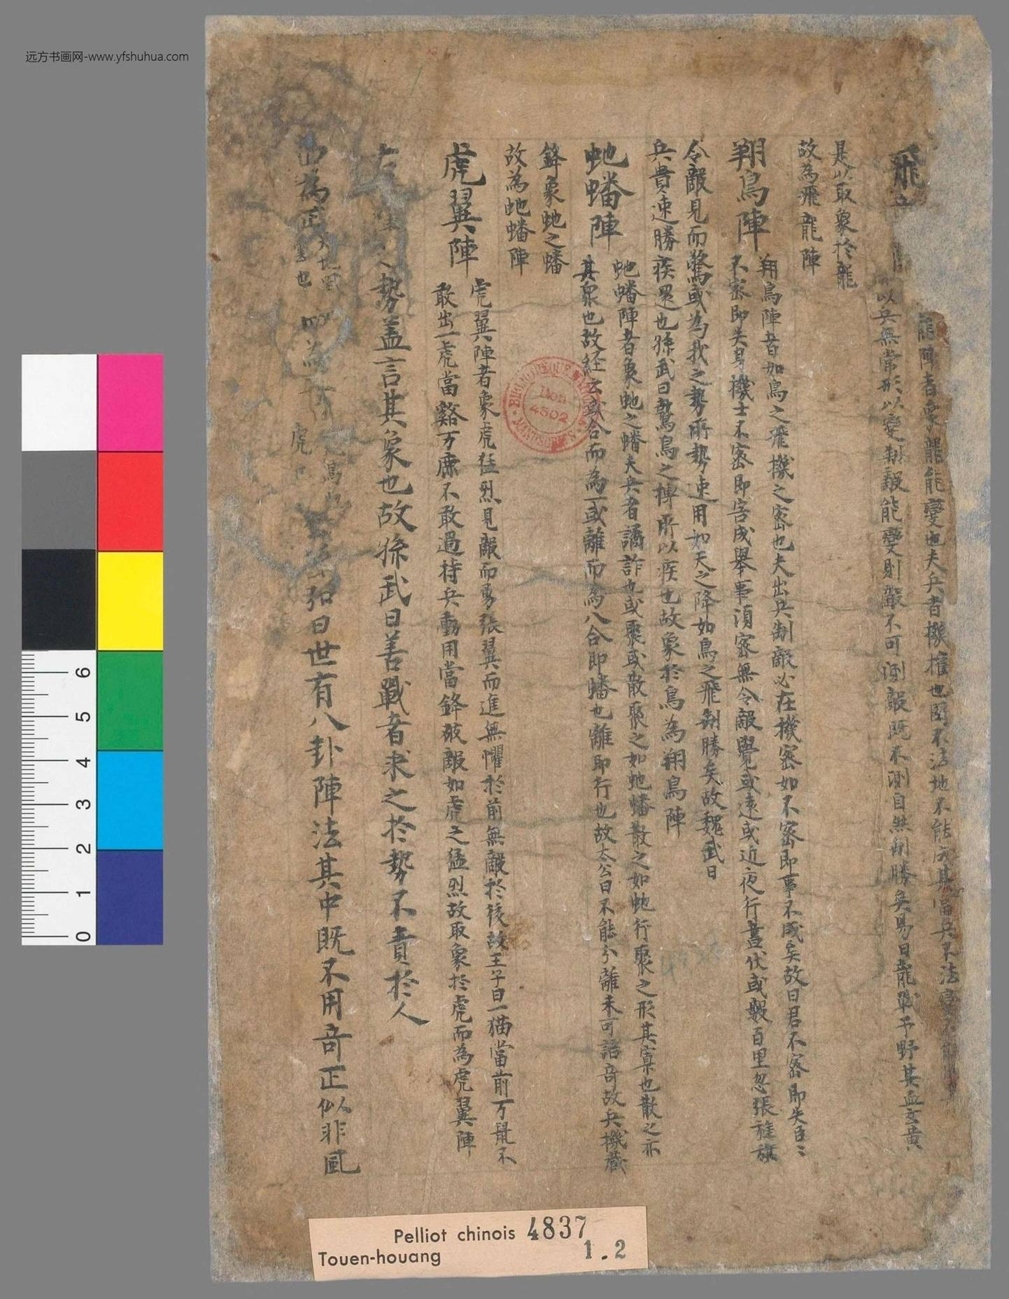 远方书画网-www.yfshuhua.com
飛
龍陣者象龍能變也夫兵者機權也
以兵無常形以變制敵能變則敵不可測敵既不測自然制勝矣易曰龍戰于野其血玄黃
是以取象於龍
故為飛龍陣
翔鳥陣
翔鳥陣者如鳥之飛機之密也夫出兵制敵必在機密如不密即事不成矣故曰君不密即失臣臣
不密即失身機士不密即害成舉事須密無令敵覺或遠或近夜行晝伏或襲百里忽張旌旗
令敵見而驚或為我之勢所勢速用如天之降如鳥之飛制勝矣故魏武曰
兵貴速勝疾還也孫武曰鷙鳥之摶所以疾也故象於鳥為翔鳥陣
虵蟠陣
虵蟠陣者象虵之蟠夫兵者譎詐也或聚或散聚之如虵蟠散之如虵行聚之形其寡也散之亦
其衆也故経云或合而為一或離而為八合即蟠也離即行也故太公曰不能分離未可語奇故兵機藏
鋒象虵之蟠
故為虵蟠陣
虎翼陣
虎翼陣者象虎猛烈見敵而勇張翼而進無懼於前無敵於後故王子曰一猫當前万鼠不
敢出一虎當谿万鹿不敢過持兵動用當鋒破敵如虎之猛烈故取象於虎而為虎翼陣
勢蓋言其象也故孫武曰善戰者求之於勢不責於人
為
也
四為
虎
曰世有八卦陣法其中既不用奇正似非風
BIBLIOTHEQUE
Don
4502
MANUSCRITS
Pelliot chinois 4837
Touen-houang 1.2
6
5
4
3
2
1
0